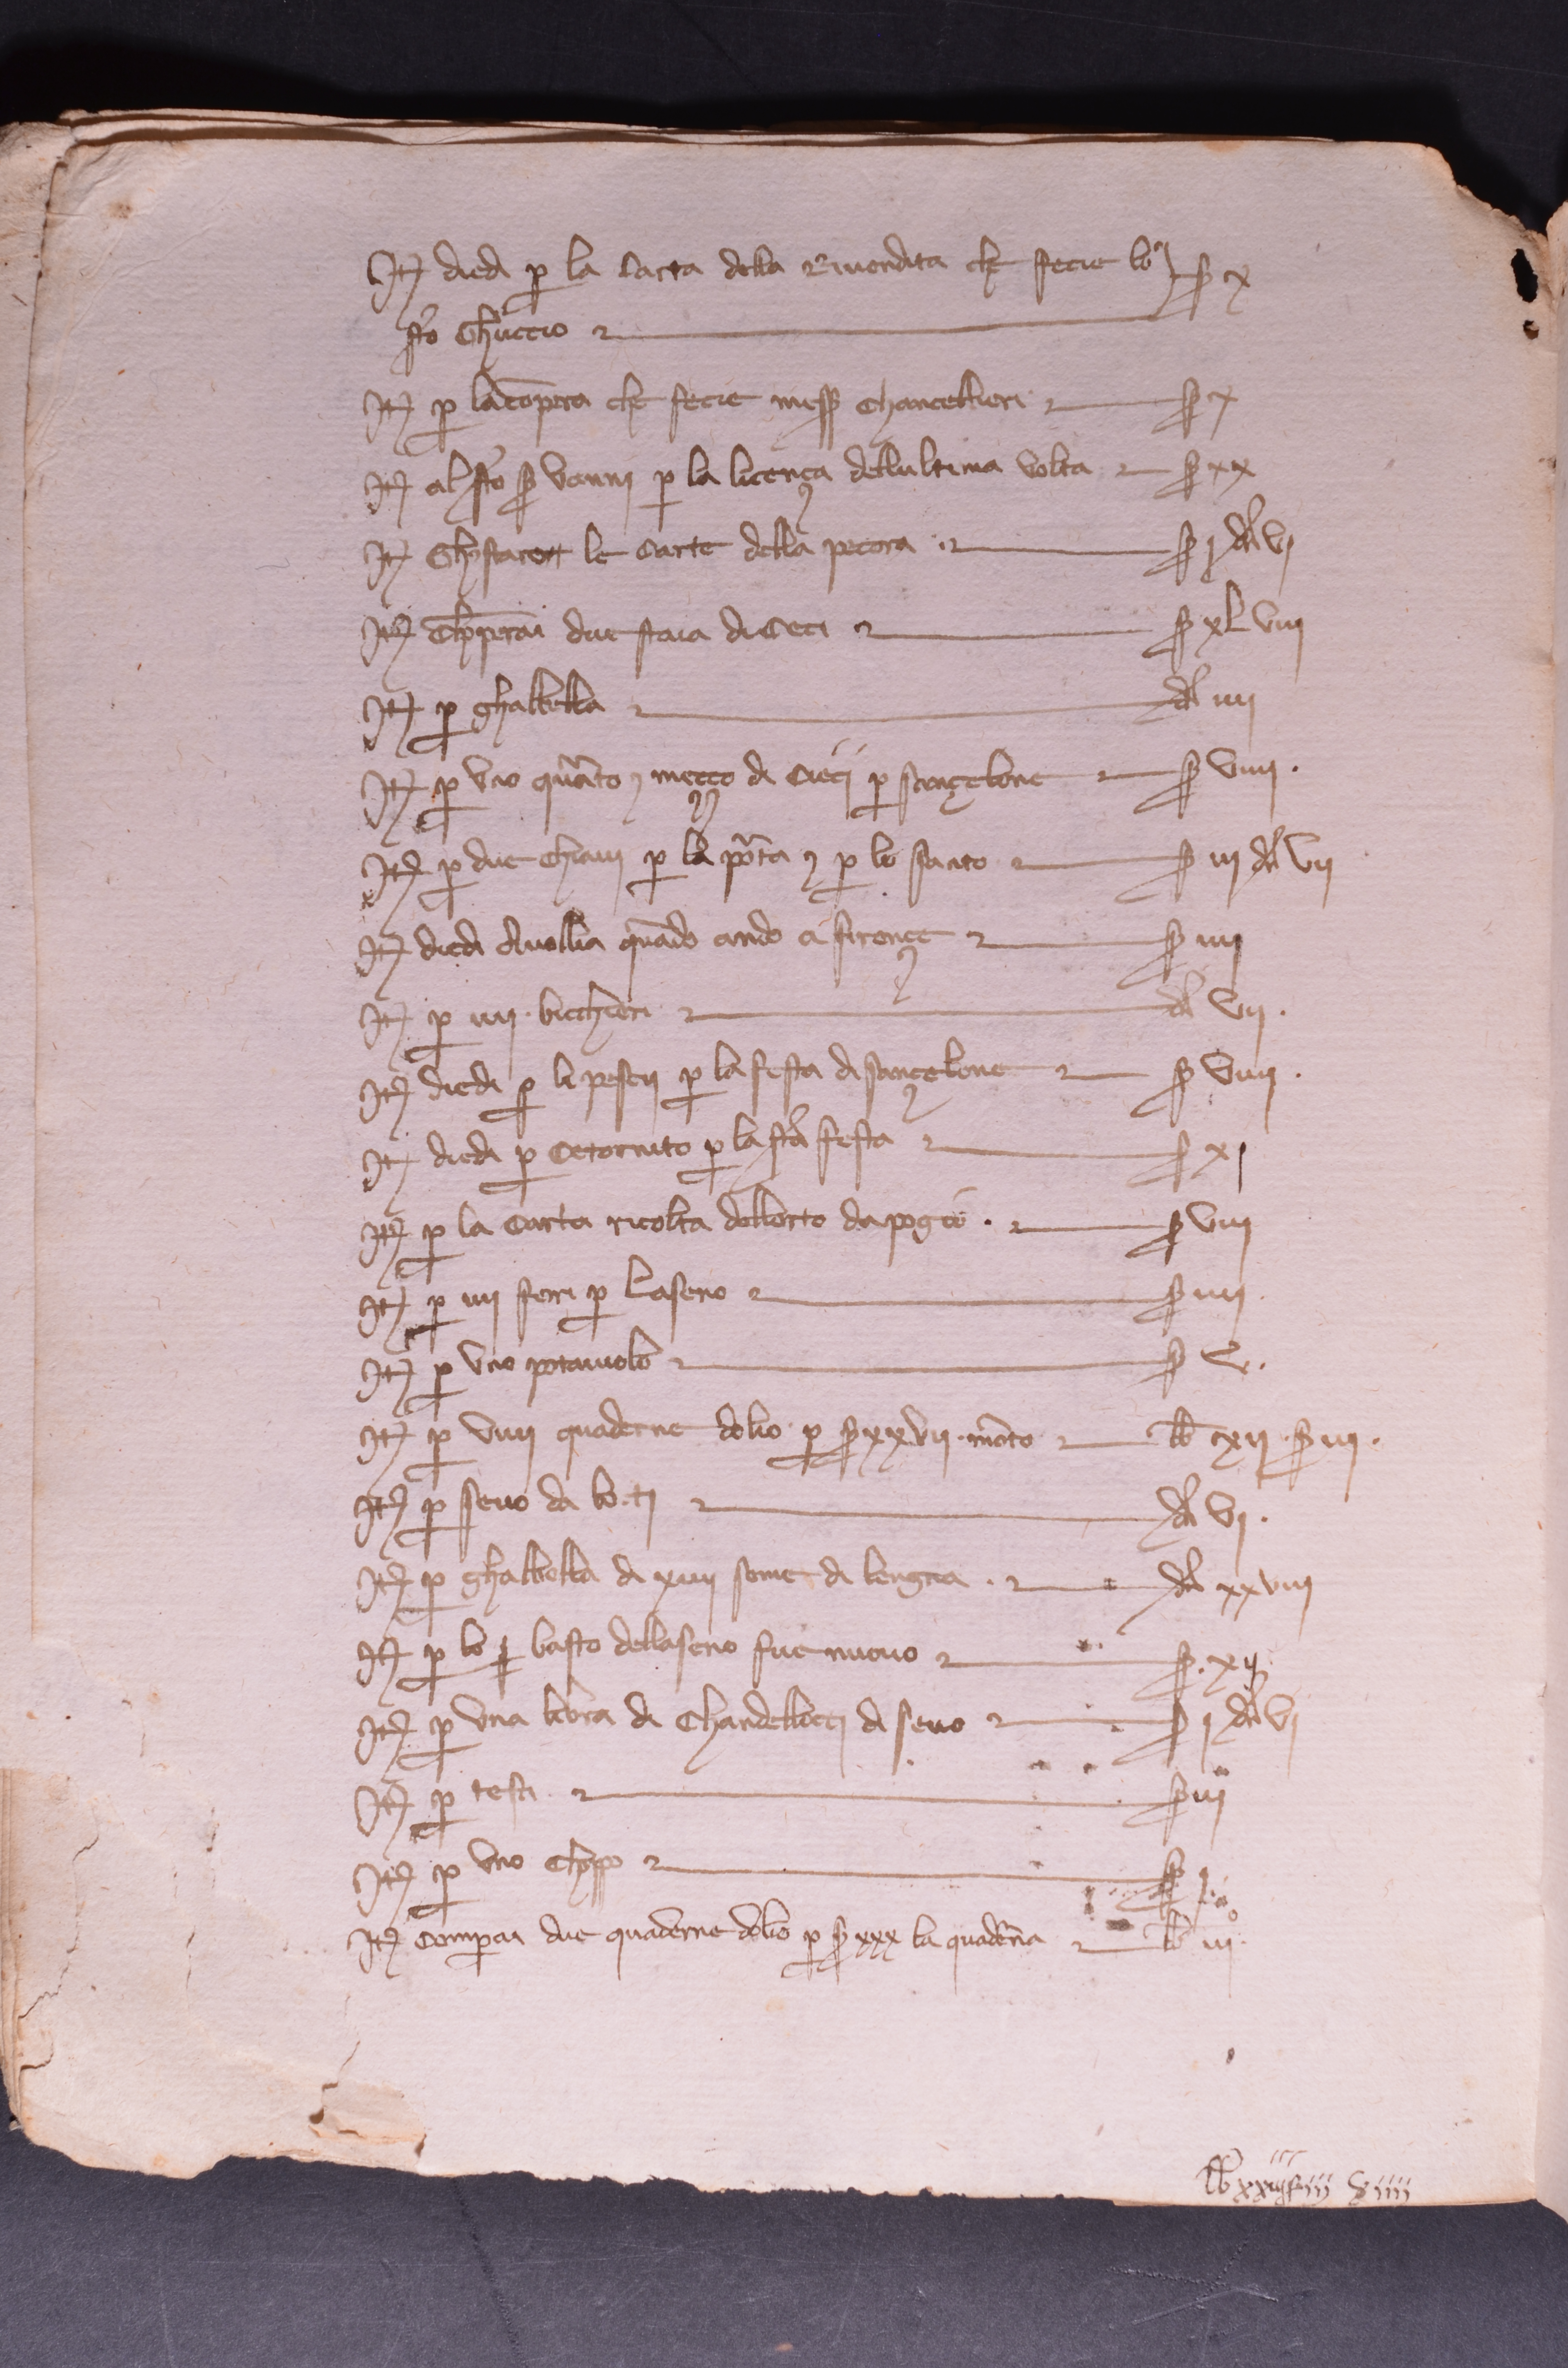 It diedi p la carta della Rivendita che fecie lo s x
sto Ghuccio
It p la copera che fecie mess Chancellieri s x
It al sto s Vanni p la licença dellultima volta s xx
It Chostaro le Carte della pecora s j d vj
It Chperai due staia di Ceci s xl viij
It p ghabella d iiij
It p uno quarto e meççо di Cieci p sançelone s viiij
It p due Chiavi p la porta e p lo s iij d vij
It diedi quando ando a firençe s iiij
It p iiij bicchieri d vij
It diedi p li pesci p la festa di sançelone s viiij
It diedi p p la sta festa s xj
It p la Carta ricolta dellorto da pogio s viij
It p iiij ferri p Laseno s iiij
It p uno s v
It p viiij quaderne dolio p s xxvij lb xij s iij
It p sevo da bo ti d vj
It p ghabella di xiiij some di lengna d xxviij
It p lo basto dellaseno fue nuovo s xij
It p una libra di Chandelloçi di sevo s j d vj
It p testi s iij
It p uno s
It Comperai due quaderne dolio p s xxx la quaderna lb iij